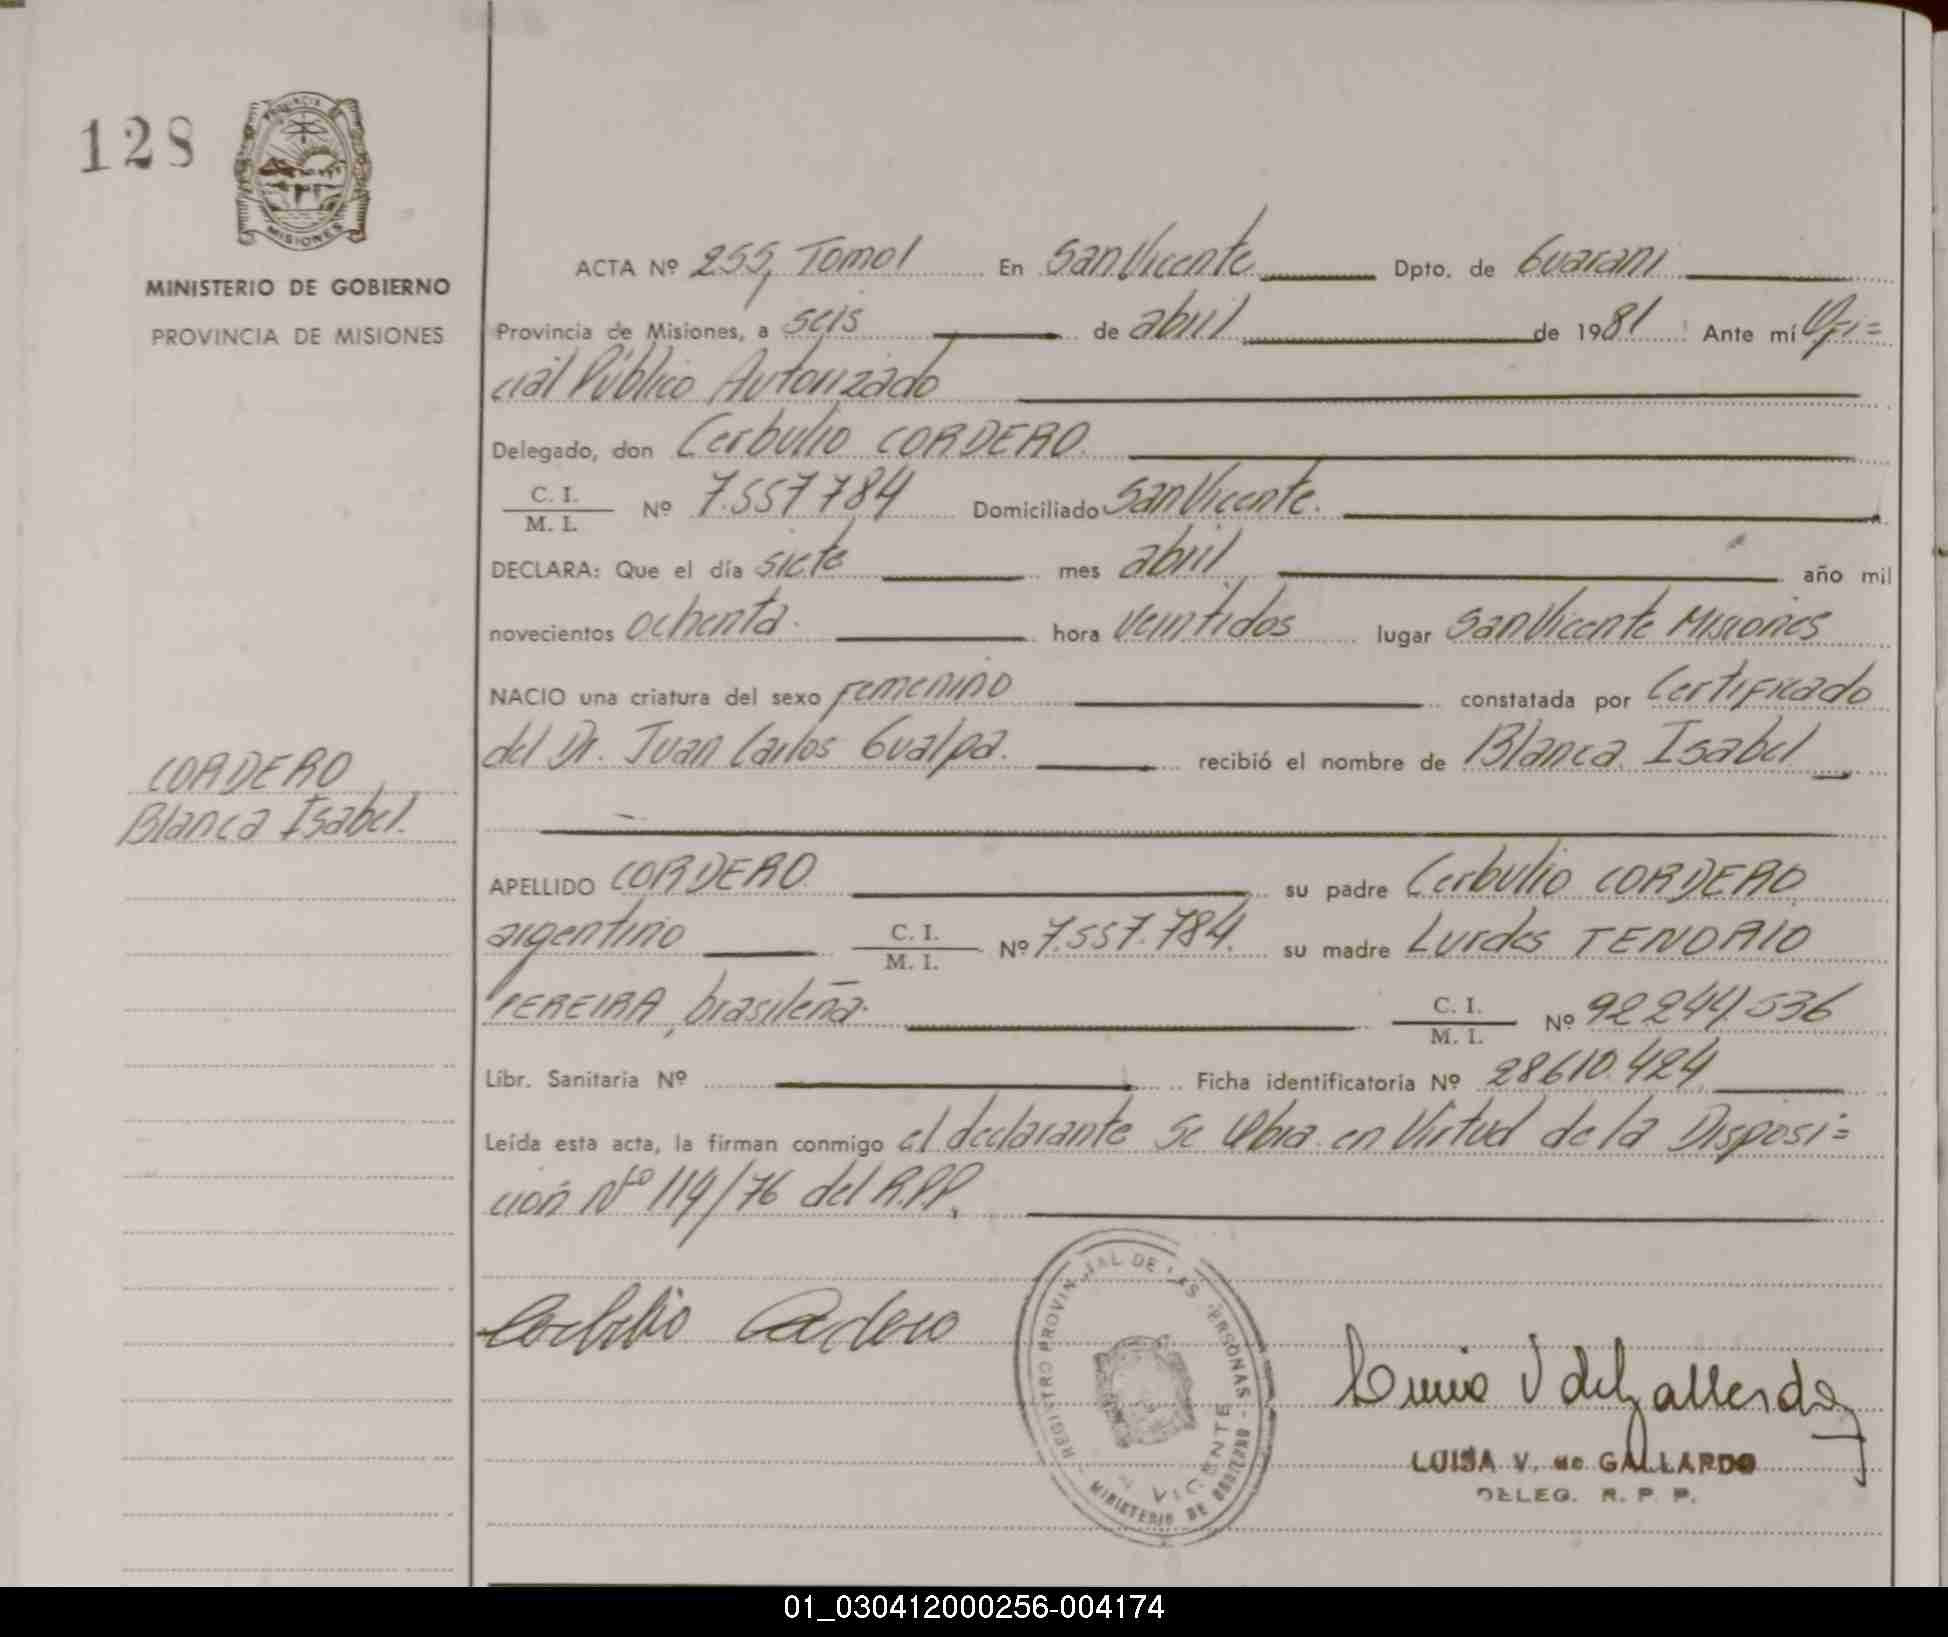 128
PROVINCIA
MISIONES
MINISTERIO DE GOBIERNO
PROVINCIA DE MISIONES
ACTA Nº 255, Tomo I En San Vicente Dpto. de Guarani
Provincia de Misiones, a seis de abril de 1981 Ante mí Ofi=
cial Público Autorizado
Delegado, don Cerbulio CORDERO
C. I.
M. I.
Nº 7.557.784 Domiciliado San Vicente.
DECLARA: Que el día siete mes abril año mil
novecientos ochenta. hora veintidos lugar San Vicente Misiones
NACIO una criatura del sexo femenino constatada por Certificado
del Dr. Juan Carlos Gualpa. recibió el nombre de Blanca Isabel
CORDERO
Blanca Isabel.
APELLIDO CORDERO su padre Cerbulio CORDERO,
argentino C. I. M. I. Nº 7.557.784. su madre Lurdes TENORIO
PEREIRA, brasileña. C. I. M. I. Nº 92.244.536
Libr. Sanitaria Nº Ficha identificatoria Nº 28610.424
Leída esta acta, la firman conmigo el declarante Se Obra en Virtud de la Disposi=
ción Nº 114/76 del R.P.P.
Cerbulio Cordero
REGISTRO PROVINCIAL DE LAS PERSONAS
VICENTE
MINISTERIO DE GOBIERNO
Luisa V de Gallardo
LUISA V. de GALLARDO
DELEG. R. P. P.
01_030412000256-004174